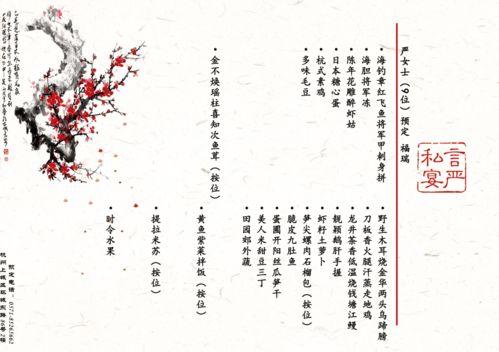 严女士（9位）预定 福瑞
言严
私宴
海钓章红飞鱼将军甲刺身拼
海胆将军冻
陈年花雕醉虾姑
日本糖心蛋
杭式素鸡
多味毛豆
金不焕瑶柱喜知次鱼茸（按位）
野生木耳烧金华两头乌蹄膀
刀板香火腿汗蒸走地鸡
龙井茶香低温烧钱塘江鳗
靓颖鹅肝手握
虾籽土萝卜
笋尖螺肉石榴包（按位）
脆皮九肚鱼
蛋圃开阳丝瓜笋干
美人米甜豆三丁
田园郊外蔬
黄鱼紫菜拌饭（按位）
提拉米苏（按位）
时令水果